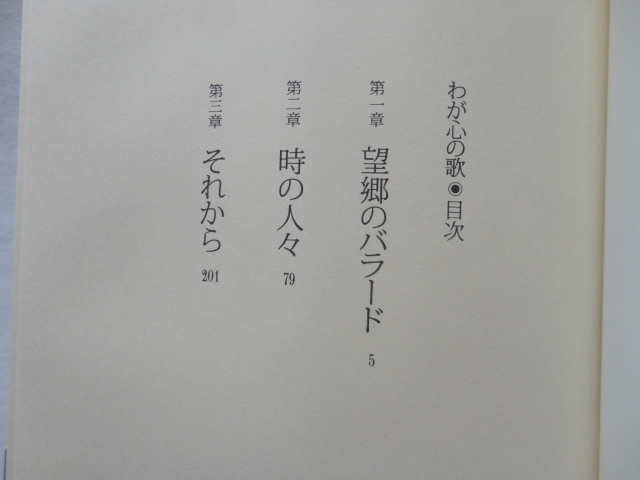 わが心の歌◉目次
第一章 望郷のバラード 5
第二章 時の人々 79
第三章 それから 201